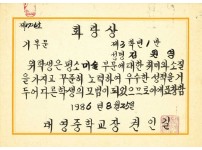 화랑상
부문
제3학년1반
성명
위 학생은 평소 미술 부문에 대한 취미와 소질
을 가지고 꾸준히 노력하여 우수한 성적을 거
두어 다른 학생의 모범이 되었으므로 이에 표창함
1986년 8월25일
대영중학교장 권인길